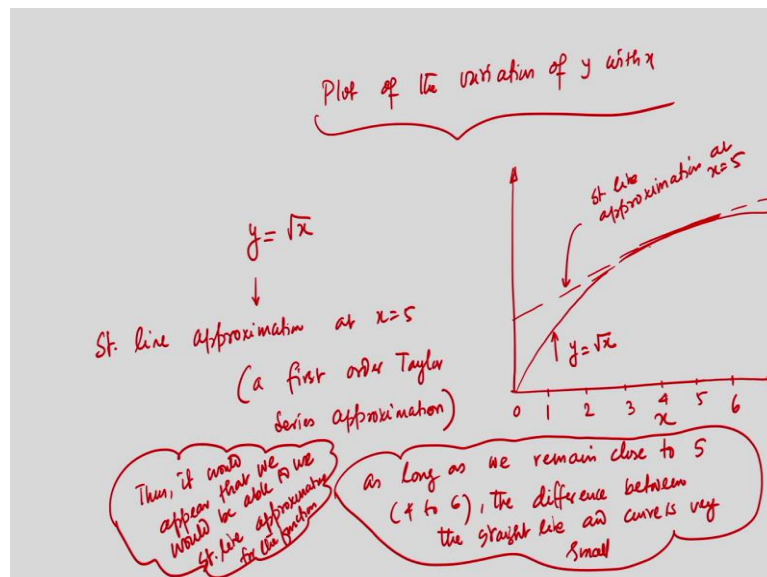 Plot of the variation of y with x
y = √x
St. line approximation at x=5
(a first order Taylor
Series approximation)
St. line
approximation at
x=5
y=√x
0 1 2 3 4 5 6
x
Thus, it would
appear that we
would be able to use
St. line approximation
for the function
as long as we remain close to 5
(4 to 6), the difference between
the straight line and curve is very
small